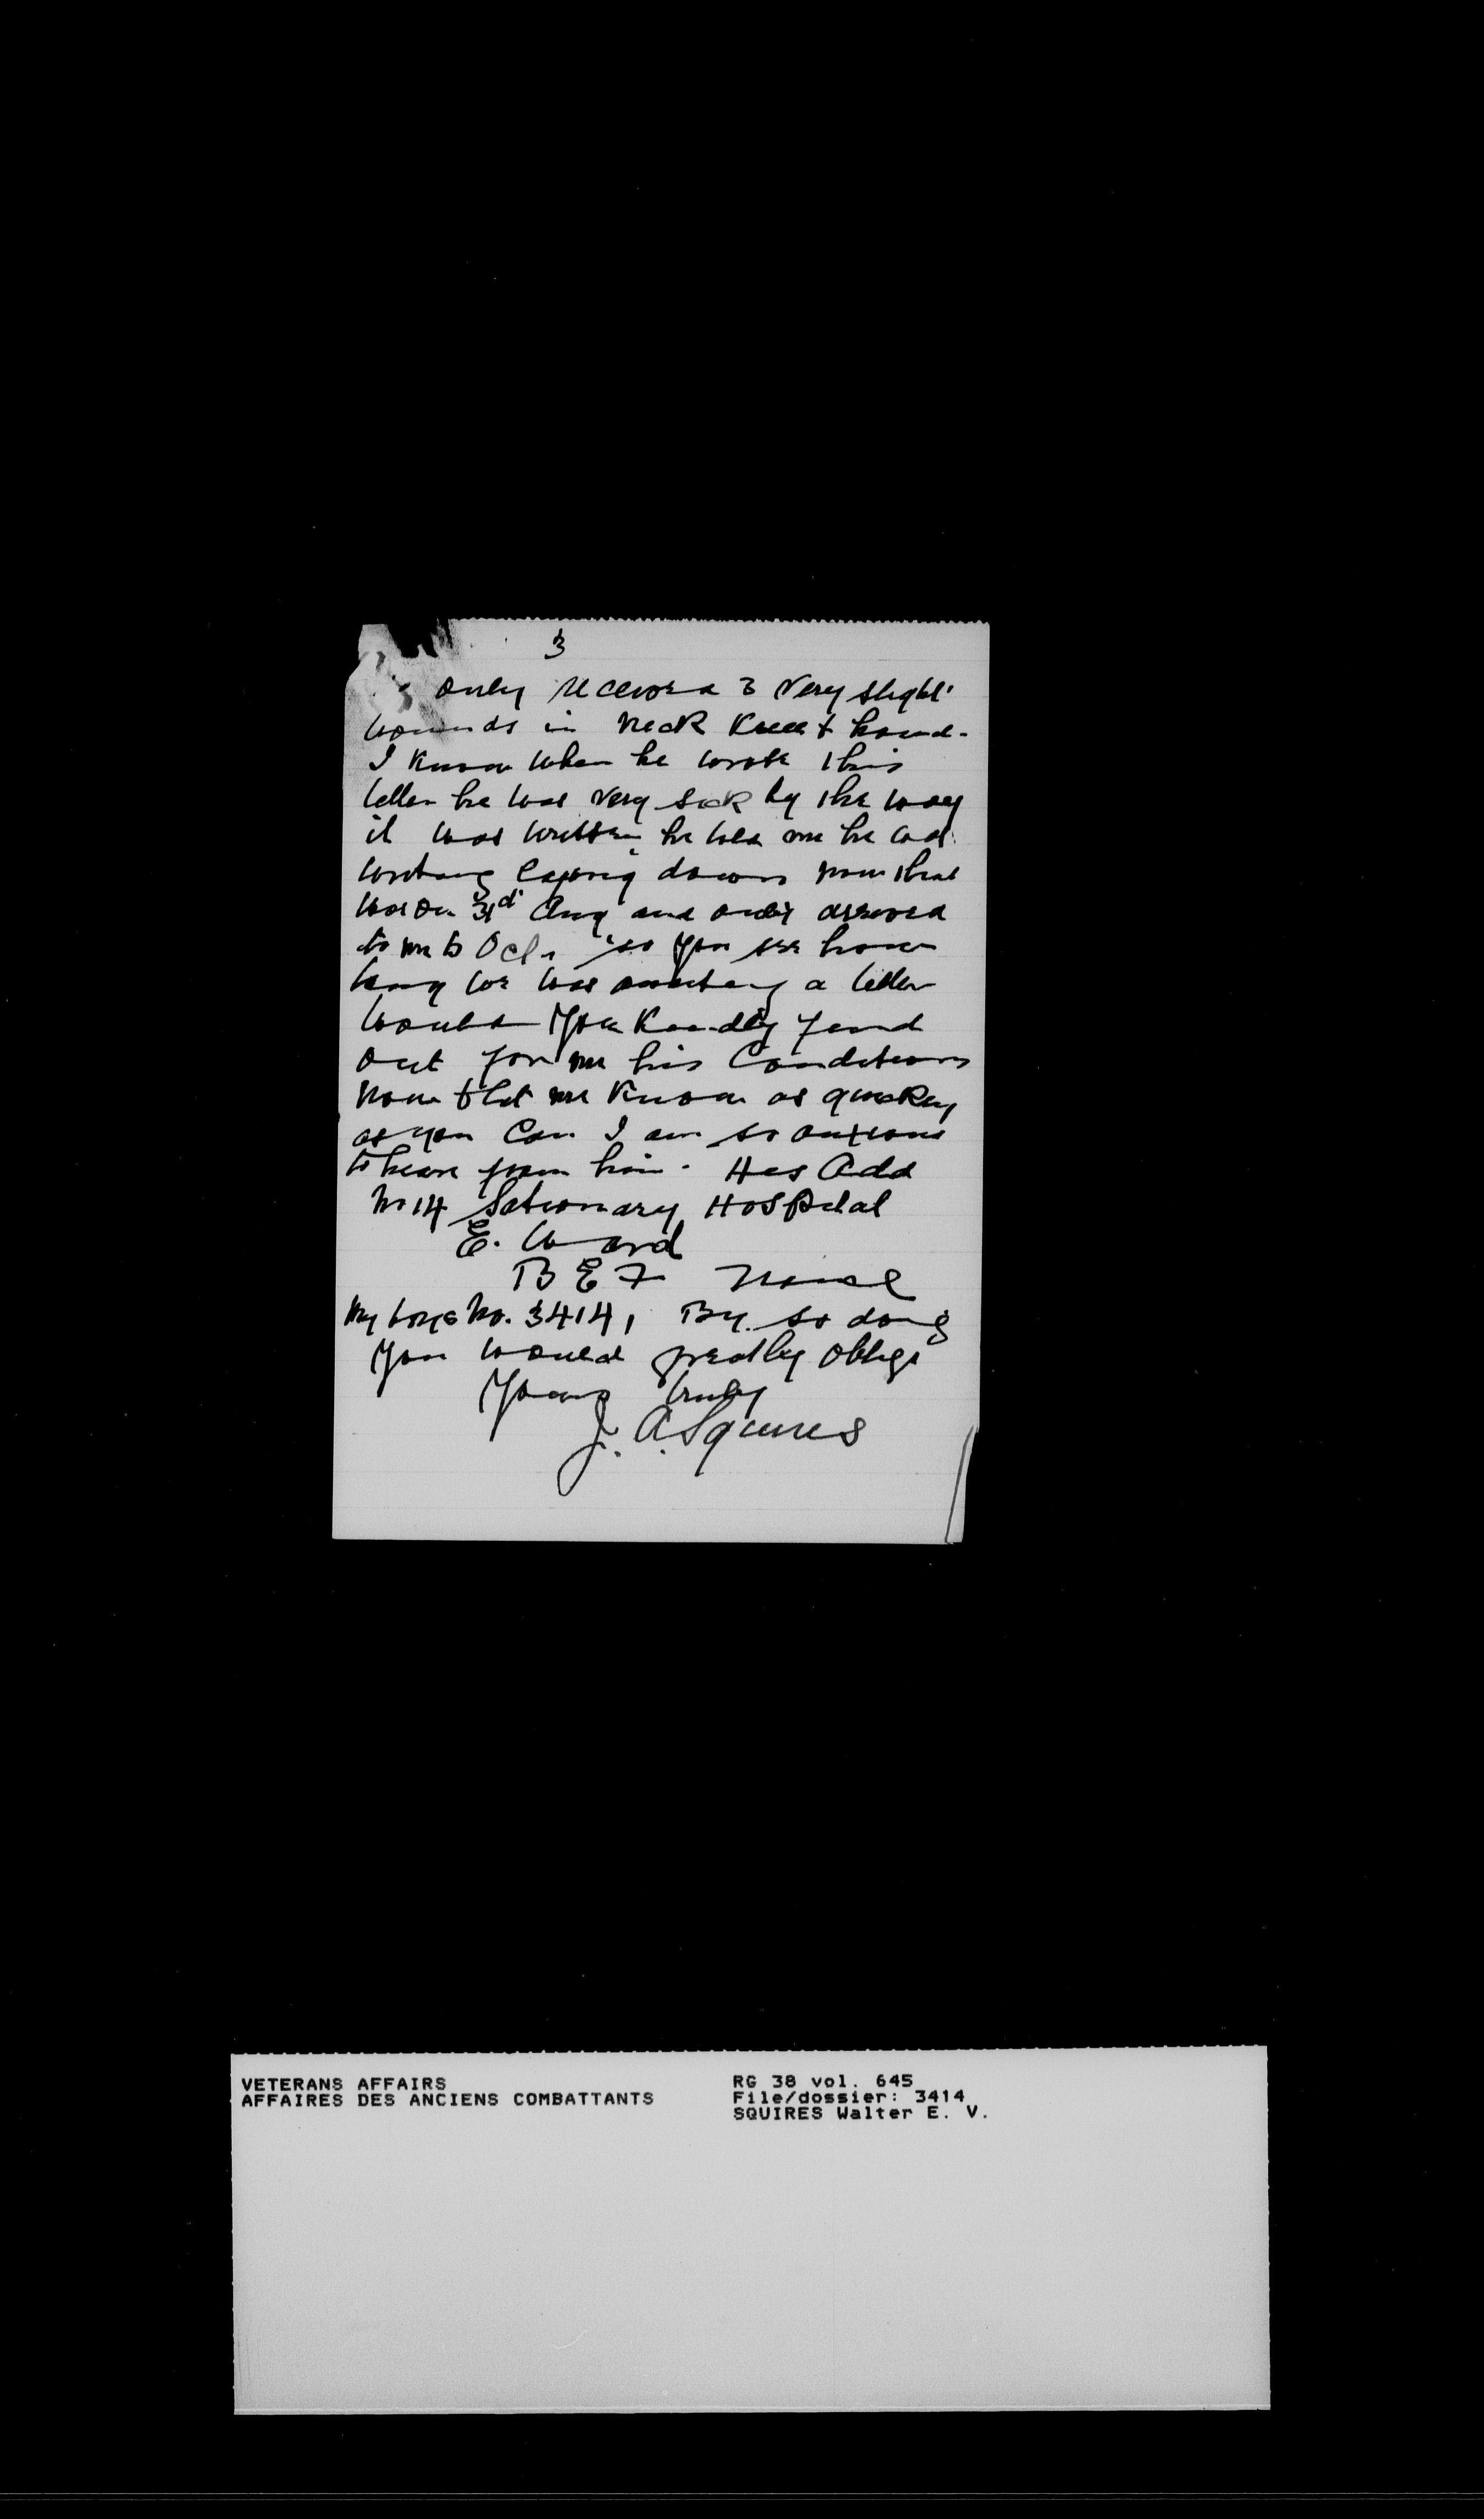 3
only received 3 very slight
wounds in neck knee & hand.
I know when he wrote this
letter he was very sick by the way
it was written, he told me he was
writing laying down now that
was on 31d Aug and only arrived
to me to Oct. so you see how
long we was awaiting a letter
would you kindly find
out for me his Conditions
now & let me know as quickly
as you can I am so anxious
to hear from him. His Add
No 14 Sationary Hospital
E. Ward
B E F
My boys No. 3414, By so doing
you would greatly oblige
Yours truly
J. A. Squires
VETERANS AFFAIRS
AFFAIRES DES ANCIENS COMBATTANTS
RG 38 vol. 645
File/dossier: 3414
SQUIRES Walter E. V.